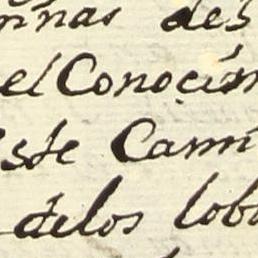 des
el Conocim
este Cami
delos lobo